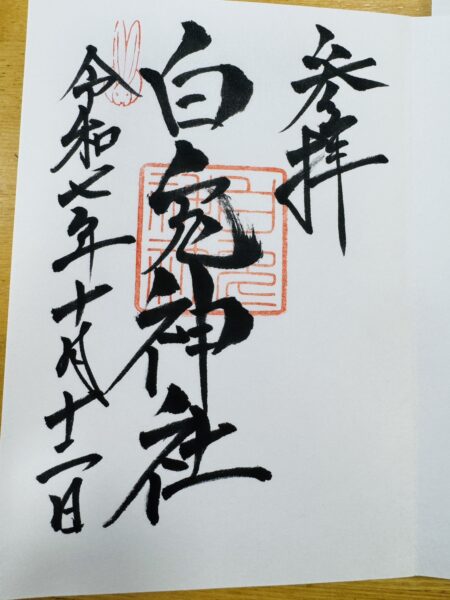 参拝
白兎神社
令和七年十月十二日